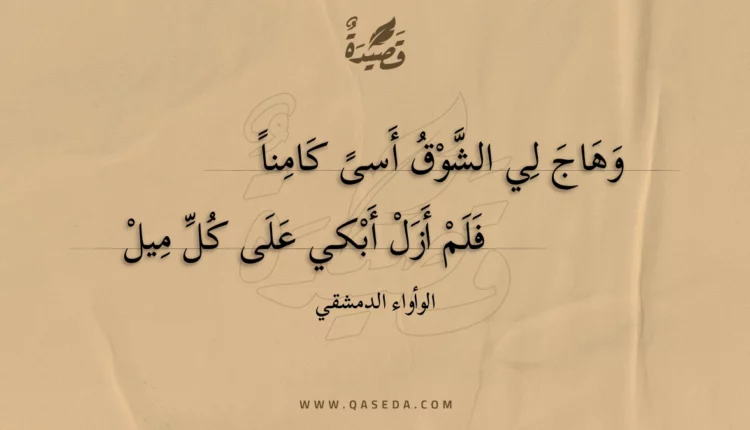 قَصِيْدَةٌ
وَهَاجَ لِي الشَّوْقُ أَسىً كَامِناً
فَلَمْ أَزَلْ أَبْكي عَلَى كُلِّ مِيلْ
الوأواء الدمشقي
WWW.QASEDA.COM